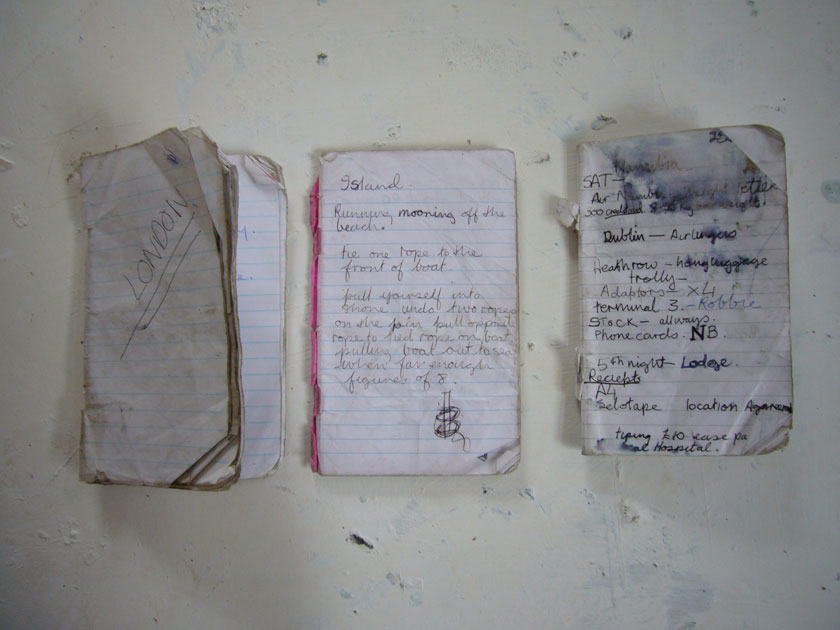 LONDON
Island.
Running mooning off the
beach.
tie one rope to the
front of boat.
pull yourself into
shore undo two ropes
on the pair pull opposite
rope to tied rope on boat
pulling boat out to sea
when far enough
figures of 8.
SAT-
Dublin - Airlingers
Heathrow - hang luggage
trolly-
Adaptors - X4
terminal 3. - Robbie
STOCK - allways.
Phone cards. NB.
5th night - Lodge.
Reciepts
A4
Selotape location
typing £10 ease pa
al Hospital.